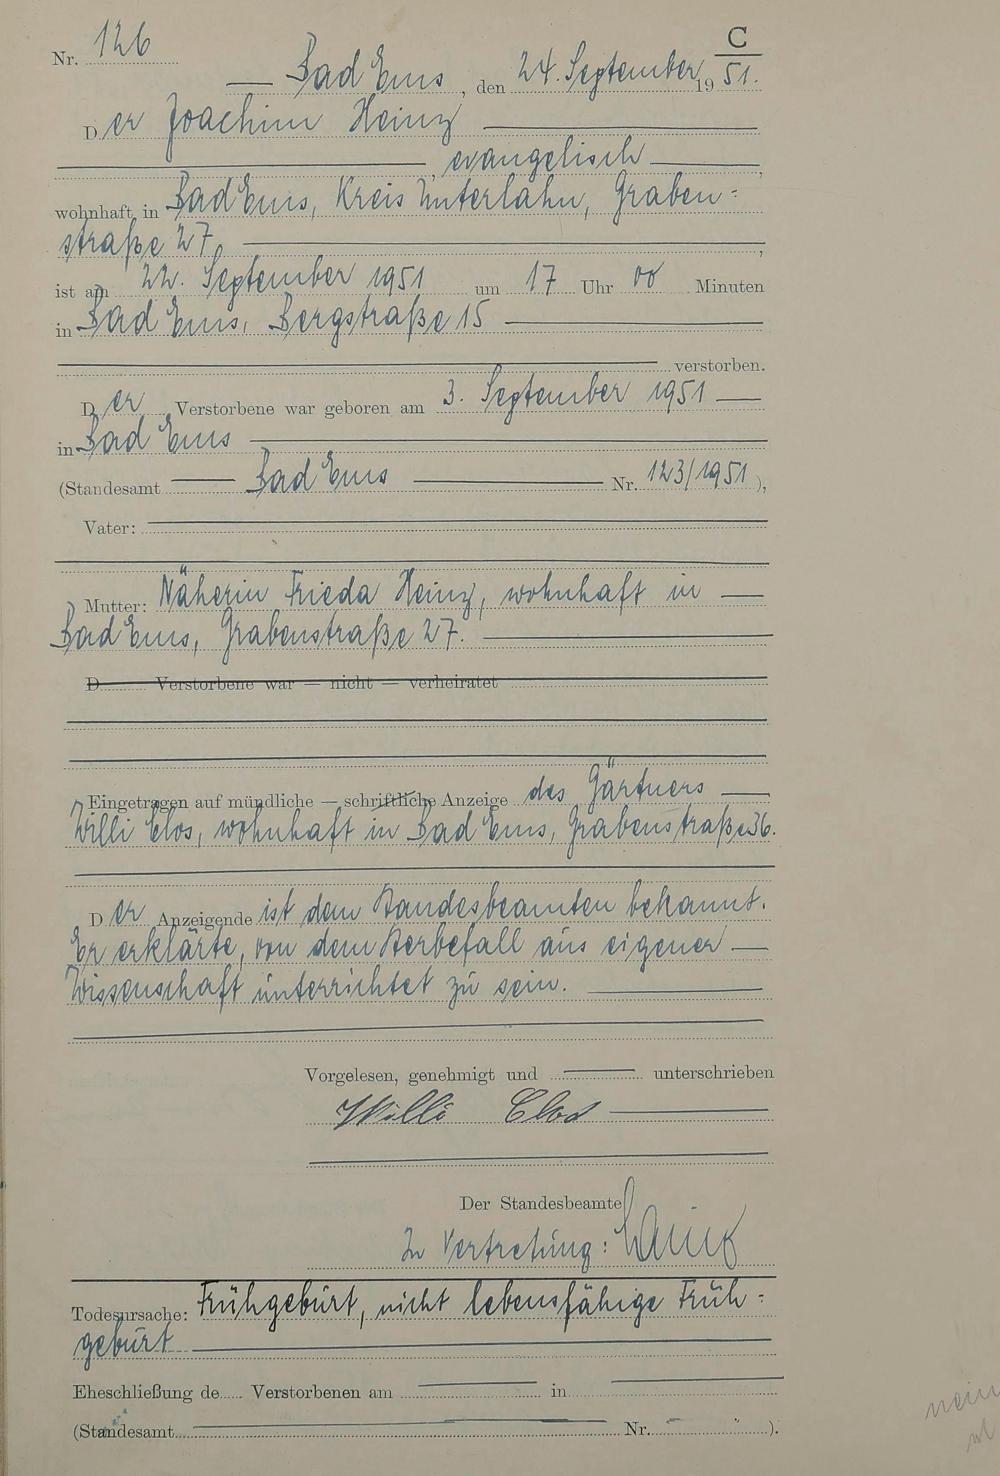 C
Nr. 126
Bad Ems, den 24. September 1951.
Der Joachim Heinz
, evangelisch,
wohnhaft in Bad Ems, Kreis Unterlahn, Graben=
straße 27,
ist am 22. September 1951 um 17 Uhr 00 Minuten
in Bad Ems, Bergstraße 15
verstorben.
Der Verstorbene war geboren am 3. September 1951
in Bad Ems
(Standesamt Bad Ems Nr. 123/1951),
Vater:
Mutter: Näherin Frieda Heinz, wohnhaft in
Bad Ems, Grabenstraße 27.
D Verstorbene war — nicht — verheiratet
Eingetragen auf mündliche — schriftliche Anzeige des Gärtners
Willi Clos, wohnhaft in Bad Ems, Grabenstraße 36.
Der Anzeigende ist dem Standesbeamten bekannt.
Er erklärte, von dem Sterbefall aus eigener
Wissenschaft unterrichtet zu sein.
Vorgelesen, genehmigt und unterschrieben
Willi Clos
Der Standesbeamte
In Vertretung:
Todesursache: Frühgeburt, nicht lebensfähige Früh=
geburt
Eheschließung de Verstorbenen am in
(Standesamt Nr. ).